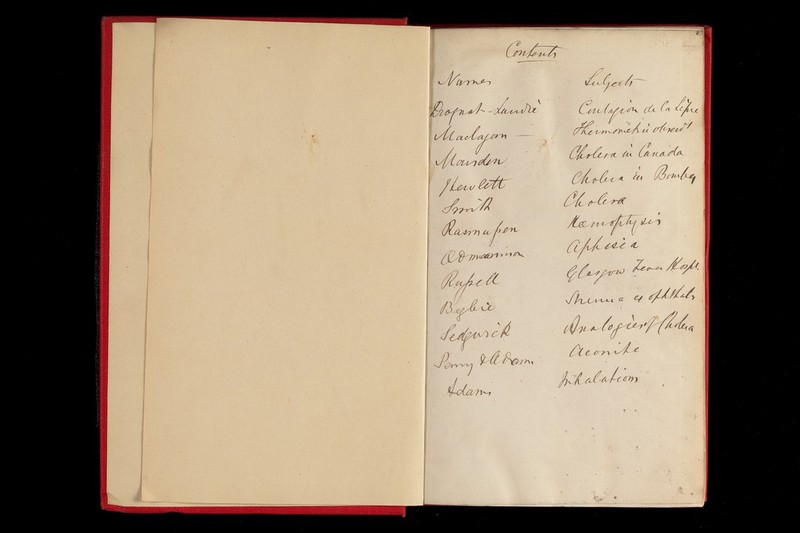 Contents
Names Subjects
Drognat-Landré Contagion de la Lèpre
Maclagan — Thermometric observns
Marsden Cholera in Canada
Hewlett Cholera in Bombay
Smith Cholera
Rasmussen Hæmoptysis
Aphasia
Russell Glasgow Fever Hospl
Begbie Struma et ophthals
Sedgwick Analogies of Cholera
& Aconite
Adams Inhalations